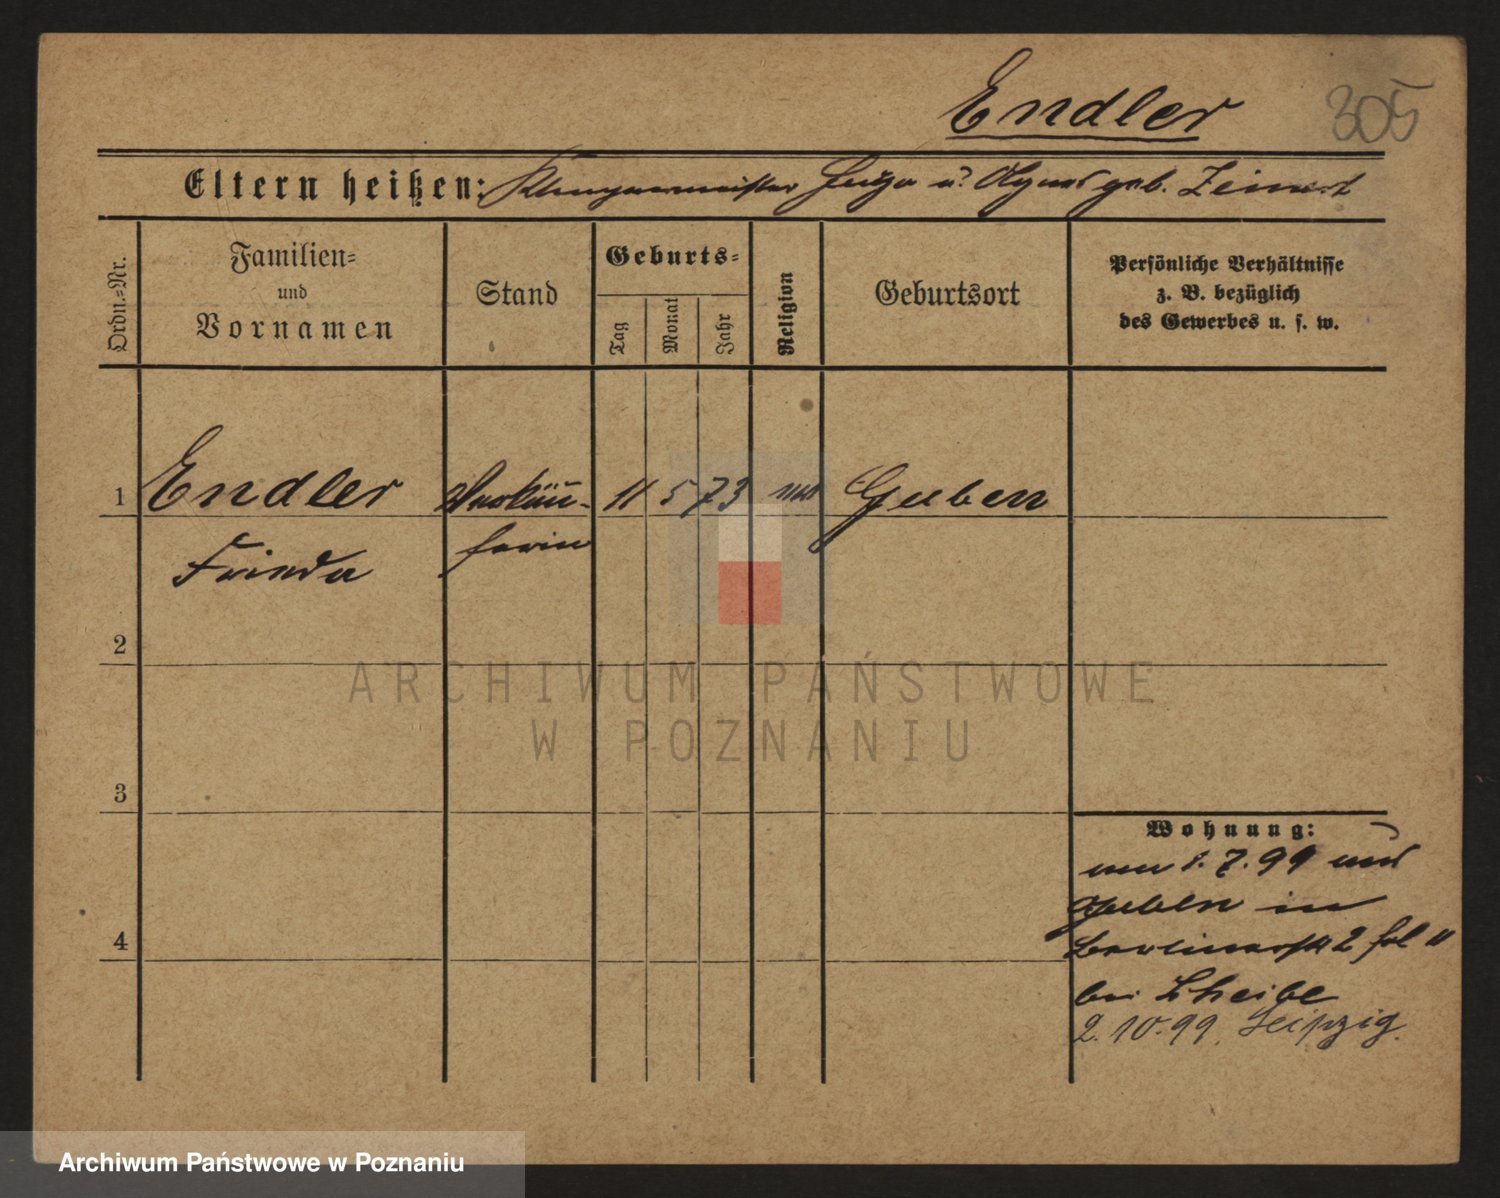 Endler 305
Eltern heißen: Klempnermeister Hugo u. Agnes geb. Zeinert
Ordn.-Nr.
Familien-
und
Vornamen
Stand
Geburts-
Tag
Monat
Jahr
Religion
Geburtsort
Persönliche Verhältnisse
z. B. bezüglich
des Gewerbes u. s. w.
1 Endler Verkäu- 11 5 73 Guben
Frieda ferin
2
ARCHIWUM PAŃSTWOWE
W POZNANIU
3
Wohnung:
1.7.99 aus
Guben in
Berlinerstr 2
bei Scheibe
2.10.99. Leipzig.
4
Archiwum Państwowe w Poznaniu